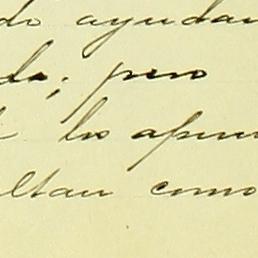 do ayudan
do; pero
los apun
ltan como